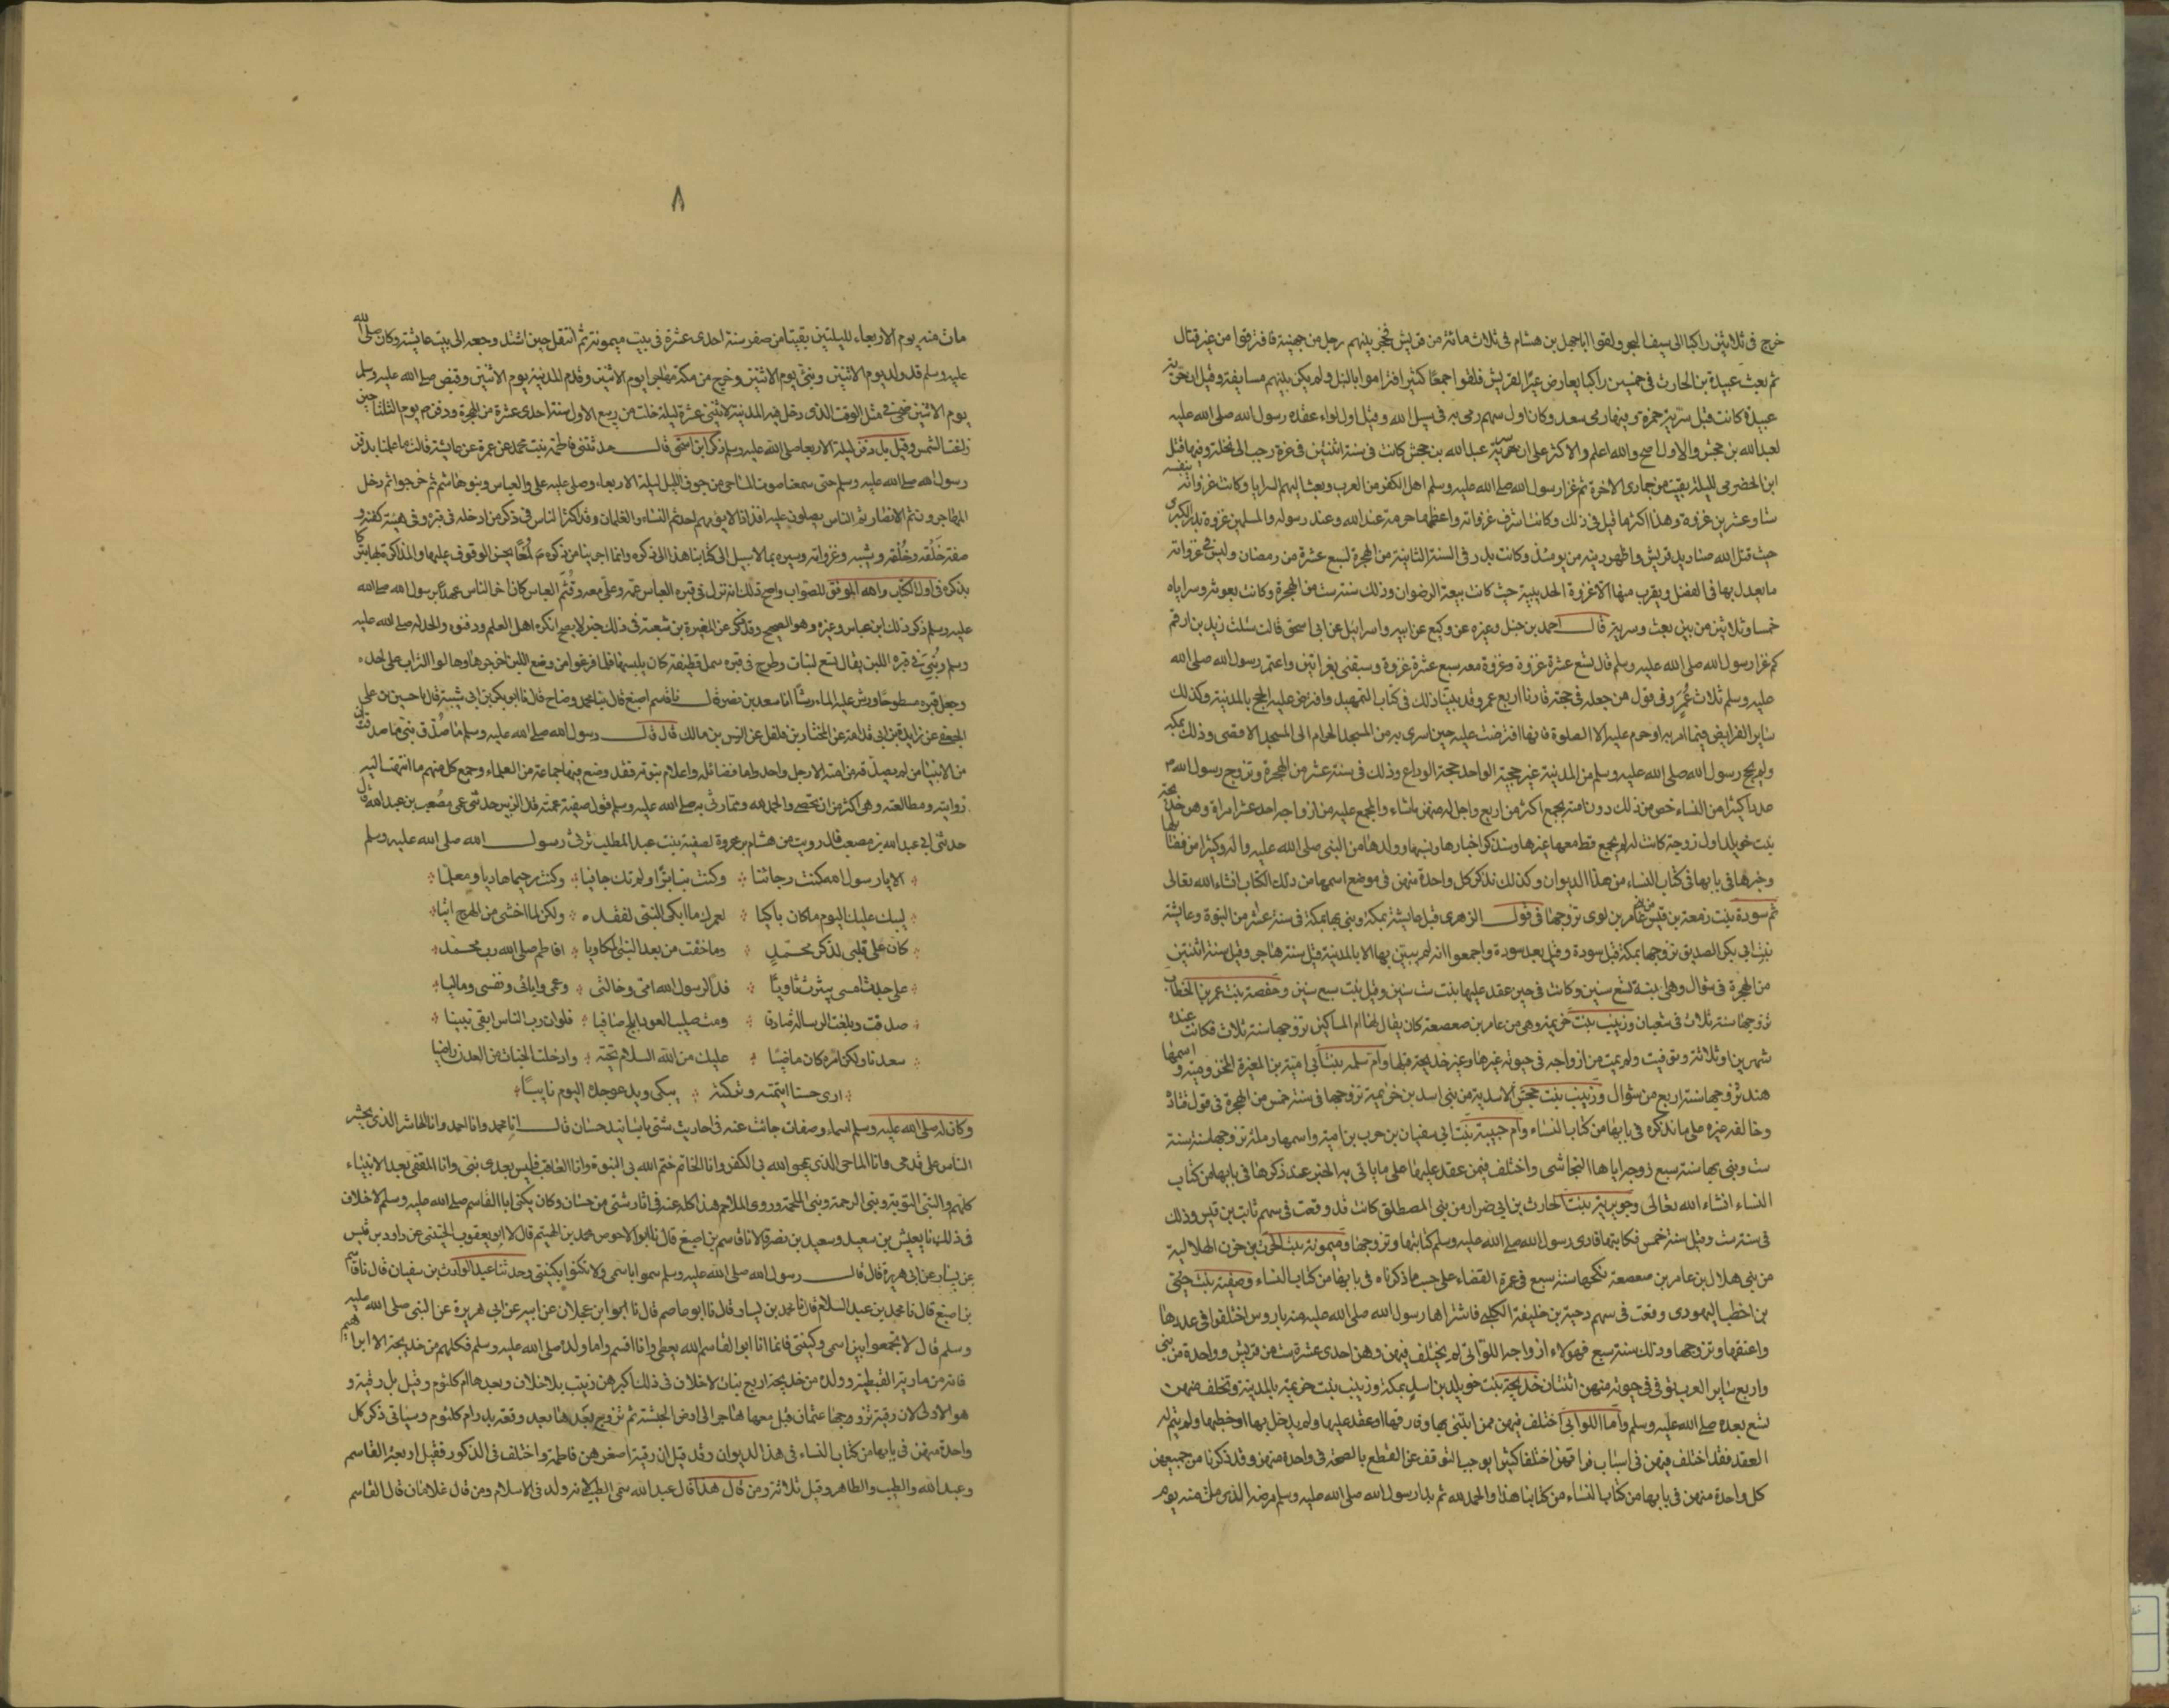 خرج في ثلاثين راكبا الى سيف البحر ولقوا اباجهل بن هشام في ثلاث مائة من قريش فحجز بينهم رجل من جهينة فافترقوا من غير قتال
ثم بعث عبيدة بن الحارث في خمسين راكبا يعارض عيرا لقريش فلقوا جمعا كثيرا فتراموا بالنبل ولم يكن بينهم مسايفة وقيل ان سرية
عبيدة كانت قبل سرية حمزة وفيها رمى سعد وكان اول سهم رمى به في سبيل الله وقيل اول لواء عقده رسول الله صلى الله عليه
لعبد الله بن جحش والاول اصح والله اعلم والاكثر على ان سرية عبد الله بن جحش كانت في سنة اثنتين في غرة رجب الى نخلة وفيها قتل
ابن الحضرمى لليلة بقيت من جمادى الاخرة ثم غزا رسول الله صلى الله عليه وسلم اهل الكفر من العرب وبعث اليهم السرايا وكانت غزواته بنفسه
ستا وعشرين غزوة وهذا اكثر ما قيل في ذلك وكانت اشرف غزواته واعظمها حرمة عند الله وعند رسوله والمسلمين غزوة بدر الكبرى
حيث قتل الله صناديد قريش واظهر دينه من يومئذ وكانت بدر في السنة الثانية من الهجرة لسبع عشرة من رمضان وليس في غزواته
ما يعدل بها في الفضل ويقرب منها الا غزوة الحديبية حيث كانت بيعة الرضوان وذلك سنة ست من الهجرة وكانت بعوثه وسراياه
خمسا وثلاثين من بين بعث وسرية قال احمد بن حنبل وغيره عن وكيع عن ابيه واسرائيل عن ابى اسحق قالت سئلت زيد بن ارقم
كم غزا رسول الله صلى الله عليه وسلم قال تسع عشرة غزوة وغزوت معه سبع عشرة غزوة وسبقنى بغزاتين واعتمر رسول الله صلى الله
عليه وسلم ثلاث عُمَر وفي قول من جعله في حجته قارنا اربع عمر وقد بينا ذلك في كتاب التمهيد وافترض عليه الحج بالمدينة وكذلك
ساير الفرايض فيما امر به او حرم عليه الا الصلوة فانها افترضت عليه حين اسرى به من المسجد الحرام الى المسجد الاقصى وذلك بمكة
ولم يحج رسول الله صلى الله عليه وسلم من المدينة غير حجته الواحدة حجة الوداع وذلك في سنة عشر من الهجرة وتزوج رسول الله م
عددا كثيرا من النساء خص من ذلك دون امته بجمع اكثر من اربع واحل له منهن ماشاء والمجمع عليه من ازواجه احد عشرا مراة وهن خديجة
بنت خويلد اول زوجة كانت له لم يجمع قط معها غيرها وسنذكر اخبارها ونسبها وولدها من النبى صلى الله عليه واله وكثيرا من فضايلها
وخبرها في بابها في كتاب النساء من هذا الديوان وكذلك نذكر كل واحدة منهن في موضع اسمها من ذلك الكتاب انشاء الله تعالى
ثم سودة بنت زمعة بن قيس من بنى عامر بن لوى تزوجها في قول الزهرى قبل عايشة بمكة وبنى بها بمكة في سنة عشر من النبوة وعايشة
بنت ابى بكر الصديق تزوجها بمكة قبل سودة وقيل بعد سودة واجمعوا انه لم يبتن بها الا بالمدينة قيل سنة هاجر وقيل سنة اثنتين
من الهجرة في شوال وهى ابنة تسع سنين وكانت في حين عقد عليها بنت ست سنين وقيل بنت سبع سنين وحفصة بنت عمر بن الخطاب
تزوجها سنة ثلاث في شعبان وزينب بنت خزيمة وهى من عامر بن صعصعة كان يقال لها ام المساكين تزوجها سنة ثلاث فكانت عنده
شهرين او ثلاثة وتوفيت ولم يمت من ازواجه في حيوته غيرها وغير خديجة قبلها وام سلمه بنت ابى امية بن المغيرة المخزومية واسمها
هند تزوجها سنة اربع من شوال وزينب بنت جحش الاسدية من بنى اسد بن خزيمة تزوجها في سنة خمس من الهجرة في قول قتادة
وخالفه غيره على ما نذكره في بابها من كتاب النساء وام حبيبة بنت ابى سفيان بن حرب بن امية واسمها رملة تزوجها سنة
ست وبنى بها سنة سبع زوجه اياها النجاشى واختلف فيمن عقد عليها على ما ياتى به الخبر عند ذكرها في بابها من كتاب
النساء انشاء الله تعالى وجويرية بنت الحارث بن ابى ضرار من بنى المصطلق كانت قد وقعت في سهم ثابت بن قيس وذلك
في سنة ست وقيل سنة خمس فكاتبها فادى رسول الله صلى الله عليه وسلم كتابتها وتزوجها وميمونة بنت الحرث بن حزن الهلالية
من بنى هلال بن عامر بن صعصعة نكحها سنة سبع في عمرة القضاء على حسب ما ذكرناه في بابها من كتاب النساء وصفية بنت حيى
بن اخطب اليهودى وقعت في سهم دحية بن خليفة الكلبى فاشتراها رسول الله صلى الله عليه منه باروس اختلفوا في عددها
واعتقها وتزوجها وذلك سنة سبع فهولاء ازواجه اللواتى لم يختلف فيهن وهن احدى عشرة ست من قريش وواحدة من بنى
واربع ساير العرب توفى في حيوته منهن اثنتان خديجة بنت خويلد بن اسد بمكة وزينب بنت خزيمة بالمدينة وتخلف منهن
تسع بعده صلى الله عليه وسلم واما اللواتى اختلف فيهن ممن ابتنى بها وفارقها او عقد عليها ولم يدخل بها او خطبها ولم يتم له
العقد فقد اختلف فيهن في اسباب فراقهن اختلفا كثيرا يوجب التوقف عن القطع بالصحة في واحدة منهن وقد ذكرنا من جميعهن
كل واحدة منهن في بابها من كتاب النساء من كتابنا هذا والحمد لله ثم بدا رسول الله صلى الله عليه وسلم مرضه الذى مات منه يوم
٨
مات منه يوم الاربعاء لليلتين بقيتا من صفر سنة احدى عشرة في بيت ميمونة ثم انتقل حين اشتد وجعه الى بيت عايشة وكان صلى الله
عليه وسلم قد ولد يوم الاثنين ونبى يوم الاثنين وخرج من مكة مهاجرا يوم الاثنين وقدم المدينة يوم الاثنين وقبض صلى الله عليه وسلم
يوم الاثنين ضحى في مثل الوقت الذى دخل فيه المدينة لاثنتى عشرة ليلة خلت من ربيع الاول سنة احدى عشرة من الهجرة ودفن م يوم الثلثا حين
زاغت الشمس وقيل بل دفن ليلة الاربعا صلى الله عليه وسلم ذكر ابن اسحق قال حدثتنى فاطمة بنت محمد عن عمرة عن عايشة قالت ما علمنا بدفن
رسول الله صلى الله عليه وسلم حتى سمعنا صوت المساحى من جوف الليل ليلة الاربعاء وصلى عليه على والعباس وبنو هاشم ثم خرجوا ثم دخل
المهاجرون ثم الانصار ثم الناس يصلون عليه افذاذا لا يؤمهم احد ثم النساء والغلمان وقد اكثر الناس في ذكر من ادخله في قبره وفي هيئة كفنه و
صفة خَلقه وخُلقه وشيبه وغزواته وسيره بما لا سبيل الى كتابنا هذا الى ذكره وانما اجرينا من ذكره م لُمَعًا يحسن الوقوف عليها والمذاكرة بها تبركا
بذكره في اول الكتاب والله الموفق للصواب واصح ذلك انه نزل في قبره العباس عمه وعلى معه وقثم العباس كان اخر الناس عهدا برسول الله صلى الله
عليه وسلم ذكر ذلك ابن عباس وغيره وهو الصحيح وقد ذكر عن المغيرة بن شعبة في ذلك خبر لا يصح انكره اهل العلم ودفنوه والحد له صلى الله عليه
وسلم وبُنِى في قبره اللبن يقال تسع لبنات وطرح في قبره سمل قطيفة كان يلبسها فلما فرغوا من وضع اللبن اخرجوها وهالوا التراب على لحده
وجعل قبره مسطوحا ورش عليه الماء رشا انا سعد بن نصر قال نا قاسم اصبغ قال نا محمد وضاح قال نا ابو بكر بن ابى شيبة قال نا حسين بن على
الجعفى عن زايدة بن ابى قدامة عن المختار بن فلفل عن انس بن مالك قال قال رسول الله صلى الله عليه وسلم ما صُدّق نبى ما صدقت ان
من الانبيا من لم يصدقه من امته الا رجل واحد واما فضائله واعلام نبوته فقد وضع فيها جماعة من العلماء وجمع كل منهم ما انتهت اليه
روايته ومطالعته وهى اكثر من ان تحصى والحمد لله وممارثى به صلى الله عليه وسلم قول صفية عمته قال الزبير حدثنى عمى مصعب بن عبد الله قال
حدثنى ابى عبد الله بن مصعب قال رويت من هشام بن عروة لصفية بنت عبد المطلب ترثى رسول الله صلى الله عليه وسلم
الا يا رسول الله كنت رجائنا وكنت بنا برا ولم تك جافيا وكنت رحيما هاديا ومعلما
لبيك عليك اليوم ماكان باكيا لعمرك ما ابكى النبى لفقده ولكن لما اخشى من الهرج اتيا
كان على قلبى لذكر محمد وما خفت من بعد النبى المكاويا افاطم صلى الله رب محمد
على جدث امسى بيثرب ثاويا فدا لرسول الله امى وخالتى وعمى وابائى ونفسى وماليا
صدقت وبلغت الرسالة صادقا ومت صليب العود ابلج صافيا فلو ان رب الناس ابقى نبينا
سعدنا ولكن امره كان ماضيا عليك من الله السلام تحية وادخلت الجنات من العدن راضيا
ارى حسنا ايتمته وتركته يبكى ويدعو جده اليوم نائيا
وكان له صلى الله عليه وسلم اسماء وصفات جائت عنه في احاديث شتى باسانيد حسان قال انا محمد وانا احمد وانا الحاشر الذى يحشر
الناس على قدمى وانا الماحى الذى يمحو الله بى الكفر وانا الخاتم ختم الله بى النبوة وانا العاقب فليس بعدى نبى وانا المقفى بعد الانبياء
كلهم والنبى التوبة ونبى الرحمة ونبى الملحمة وروى الملاحم هذا كله عنه في اثار شتى من حسان وكان يكنى ابا القاسم صلى الله عليه وسلم لاخلاف
في ذلك نا يعيش بن سعيد وسعيد بن نصر قالا نا قاسم بن اصبغ قال نا ابو الاحوص محمد بن الهيثم قال نا ابو يعقوب الحنينى عن داود بن قيس
عن يسار عن ابى هريرة قال قال رسول الله صلى الله عليه وسلم سموا باسمى ولا تكنوا بكنيتى وحدثنا عبد الوارث بن سفيان قال نا قاسم
بن اصبغ قال نا محمد بن عبد السلام قال نا محمد بن يسار قال نا ابو عاصم قال نا ابو ابن عجلان عن ابيه عن ابى هريرة عن النبى صلى الله عليه
وسلم قال لا تجمعوا بين اسمى وكنيتى فانما انا ابو القاسم الله يعطى وانا اقسم واما ولده صلى الله عليه وسلم فكلهم من خديجة الا ابراهيم
فانه من مارية القبطية وولده من خديجة اربع بنات لاخلاف في ذلك اكبرهن زينب بلاخلاف وبعدها ام كلثوم وقيل بل رقية و
هو الاولى لان رقية تزوجها عثمان قبل معها هاجر الى ارض الحبشة ثم تزوج بعدها بعد وقعة بدر ام كلثوم وسياتى ذكر كل
واحدة منهن في بابها من كتاب النساء في هذا الديوان وقد قيل ان رقية اصغرهن فاطمة واختلف في الذكور فقيل اربعة القاسم
وعبد الله والطيب والطاهر وقيل ثلاثة ومن قال هذا قال عبد الله سمى الطيب لانه ولد في الاسلام ومن قال غلامان قال القاسم